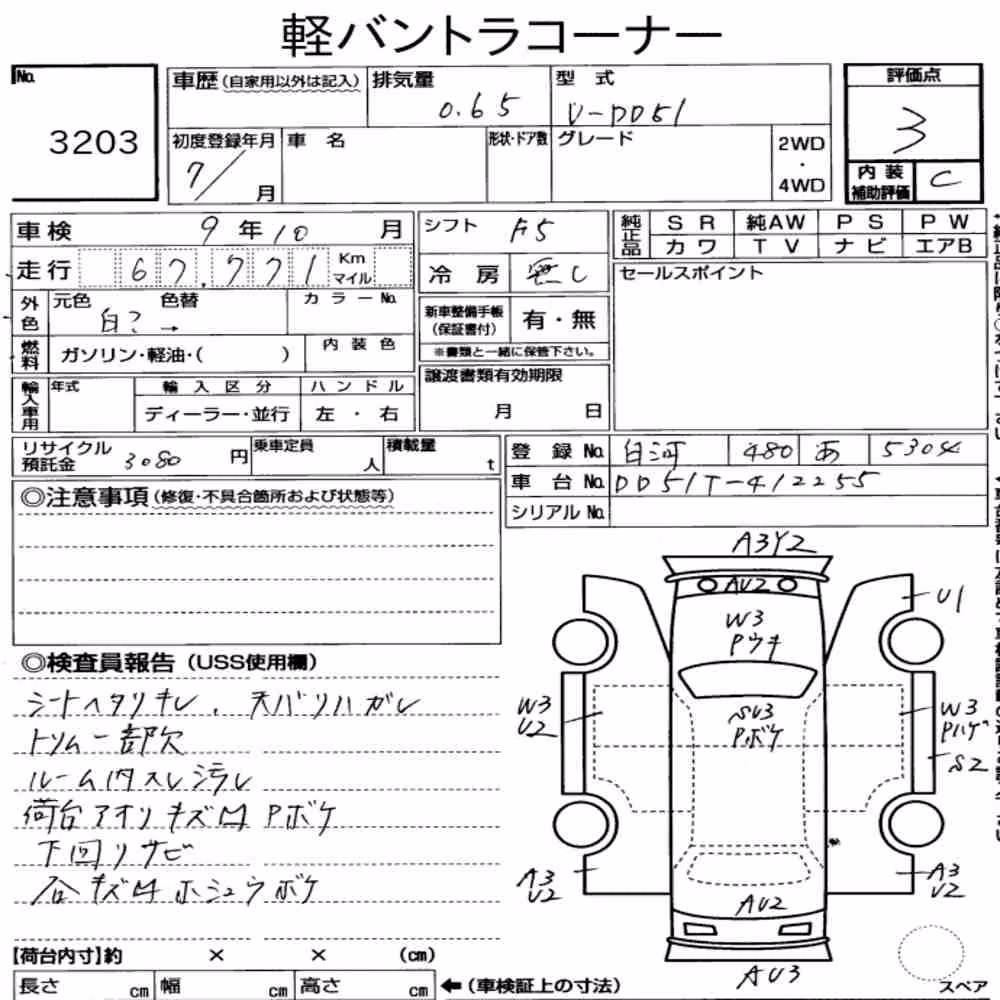 軽バントラコーナー
No.
3203
車歴 (自家用以外は記入)
排気量
0.65
型式
V-DD51
評価点
3
初度登録年月
7/ 月
車名
形状・ドア数
グレード
2WD
・
4WD
内装
補助評価
C
車検 9年10月
走行 67,771 Km マイル
外色
元色 色替
白? →
カラーNo.
燃料
ガソリン・軽油・( )
内装色
輸入車用
年式
輸入区分
ディーラー・並行
ハンドル
左・右
シフト F5
冷房 無し
新車整備手帳
(保証書付)
有・無
※書類と一緒に保管下さい。
譲渡書類有効期限
月 日
純正品
SR 純AW PS PW
カワ TV ナビ エアB
セールスポイント
リサイクル
預託金 3080 円
乗車定員
人
積載量
t
登録No. 白河 480 あ 5304
車台No. DD51T-412255
シリアルNo.
◎注意事項 (修復・不具合箇所および状態等)
◎検査員報告 (USS使用欄)
シートヘタリキレ、天バリハガレ
トリム一部欠
ルーム内スレ汚レ
荷台アオリキズ凹Pボケ
下回リサビ
各キズ凹ホシュウボケ
A3Y2
AU2
W3
Pウキ
U1
W3
U2
SU3
Pボケ
W3
Pハゲ
S2
A3
U2
A3
U2
AU2
AU3
スペア
【荷台内寸】約 × × (cm)
長さ cm 幅 cm 高さ cm ←(車検証上の寸法)